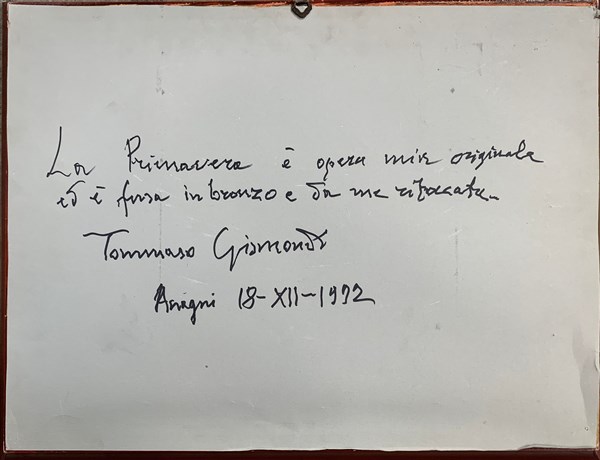 La Primavera è opera mia originale
ed è fusa in bronzo e da me ritoccata.
Tommaso Gismondi
Anagni 18-XII-1992